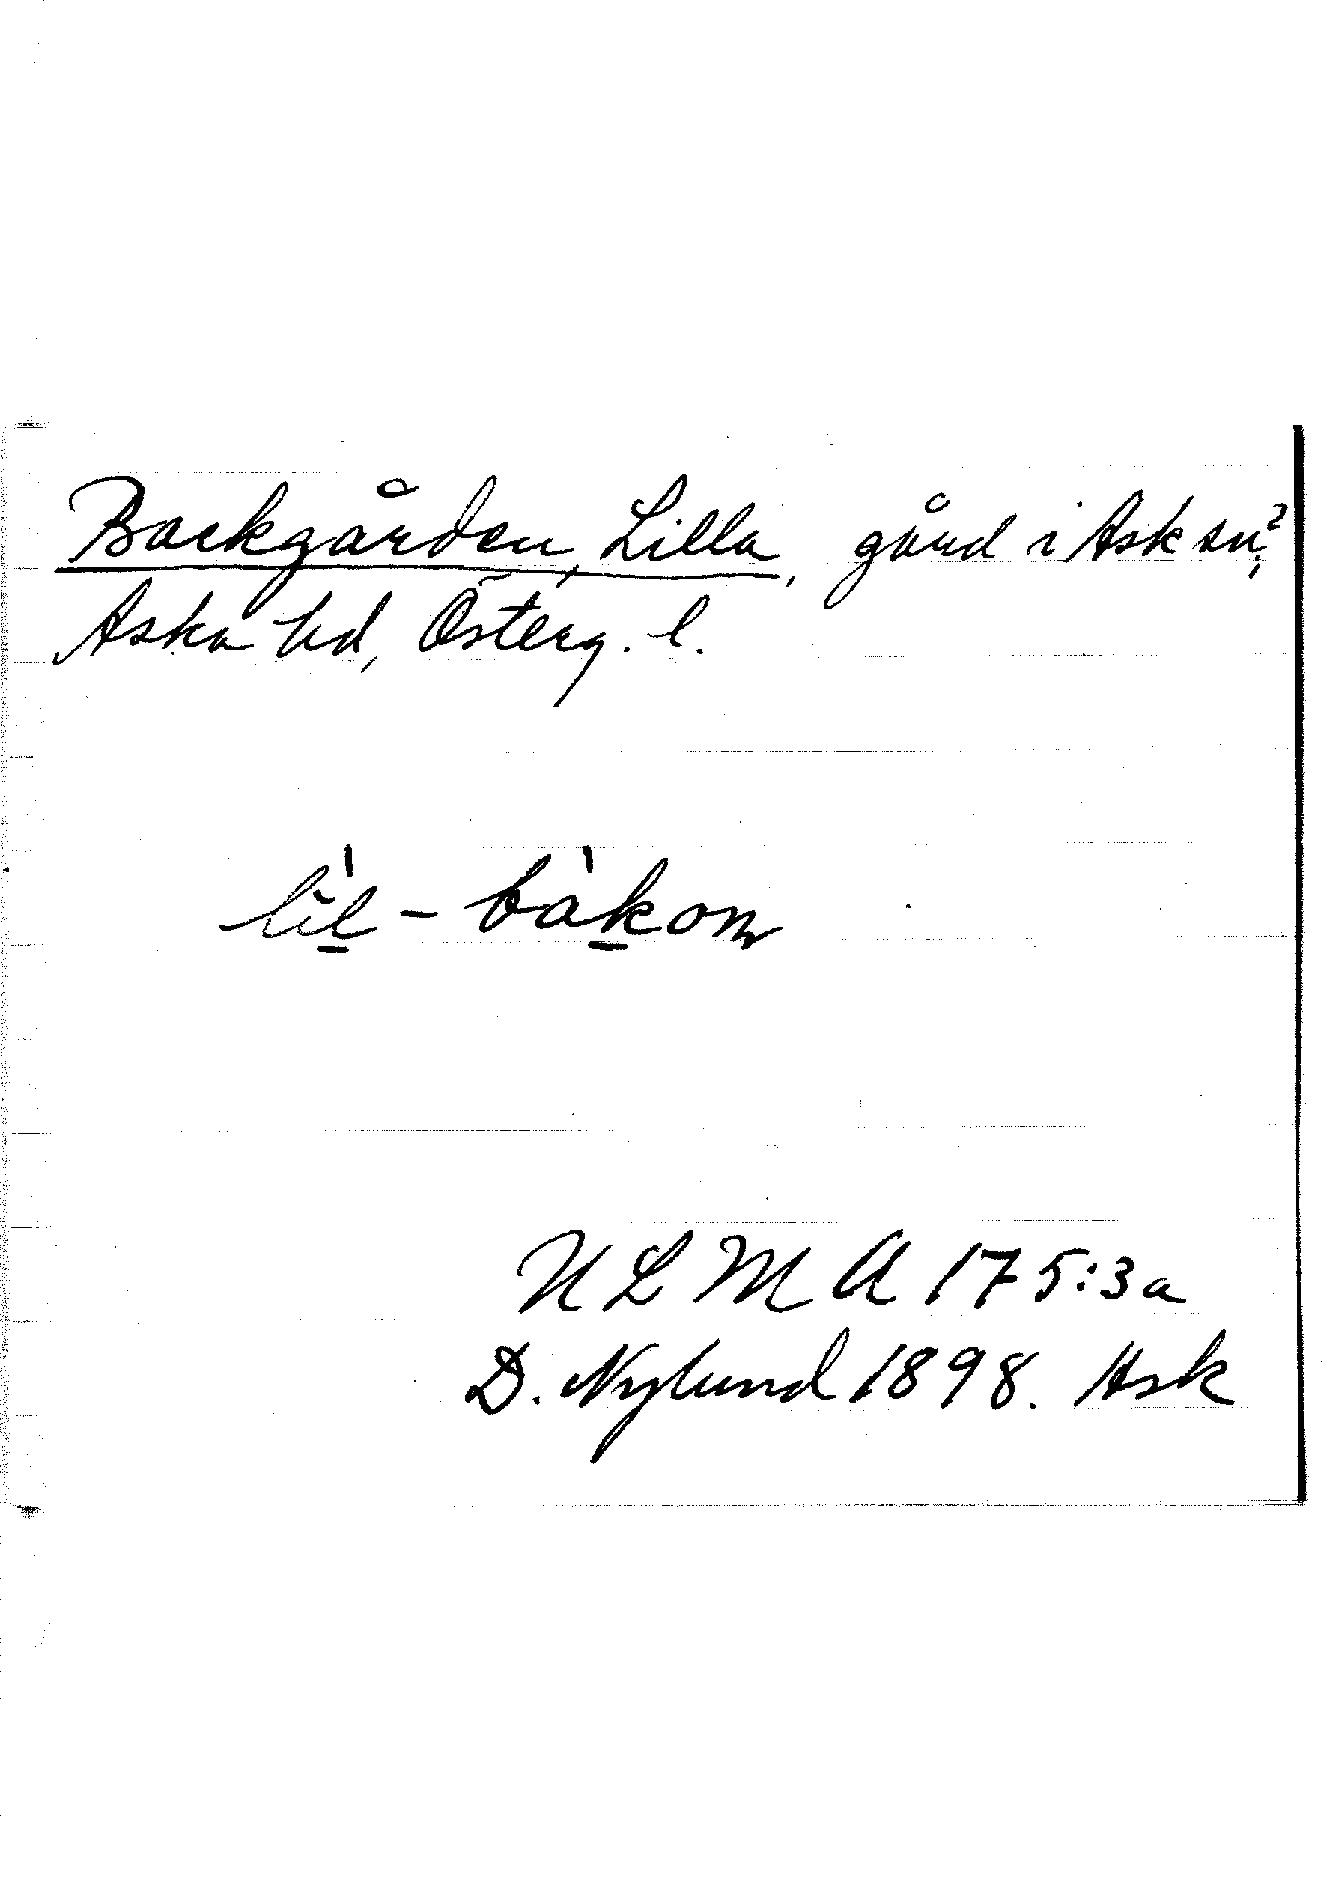 Backgården, Lilla, gård i Ask sn?,
Aska hd, Österg. l.
lil - bakon
ULMA 175:3a
D. Nylund 1898. Ask